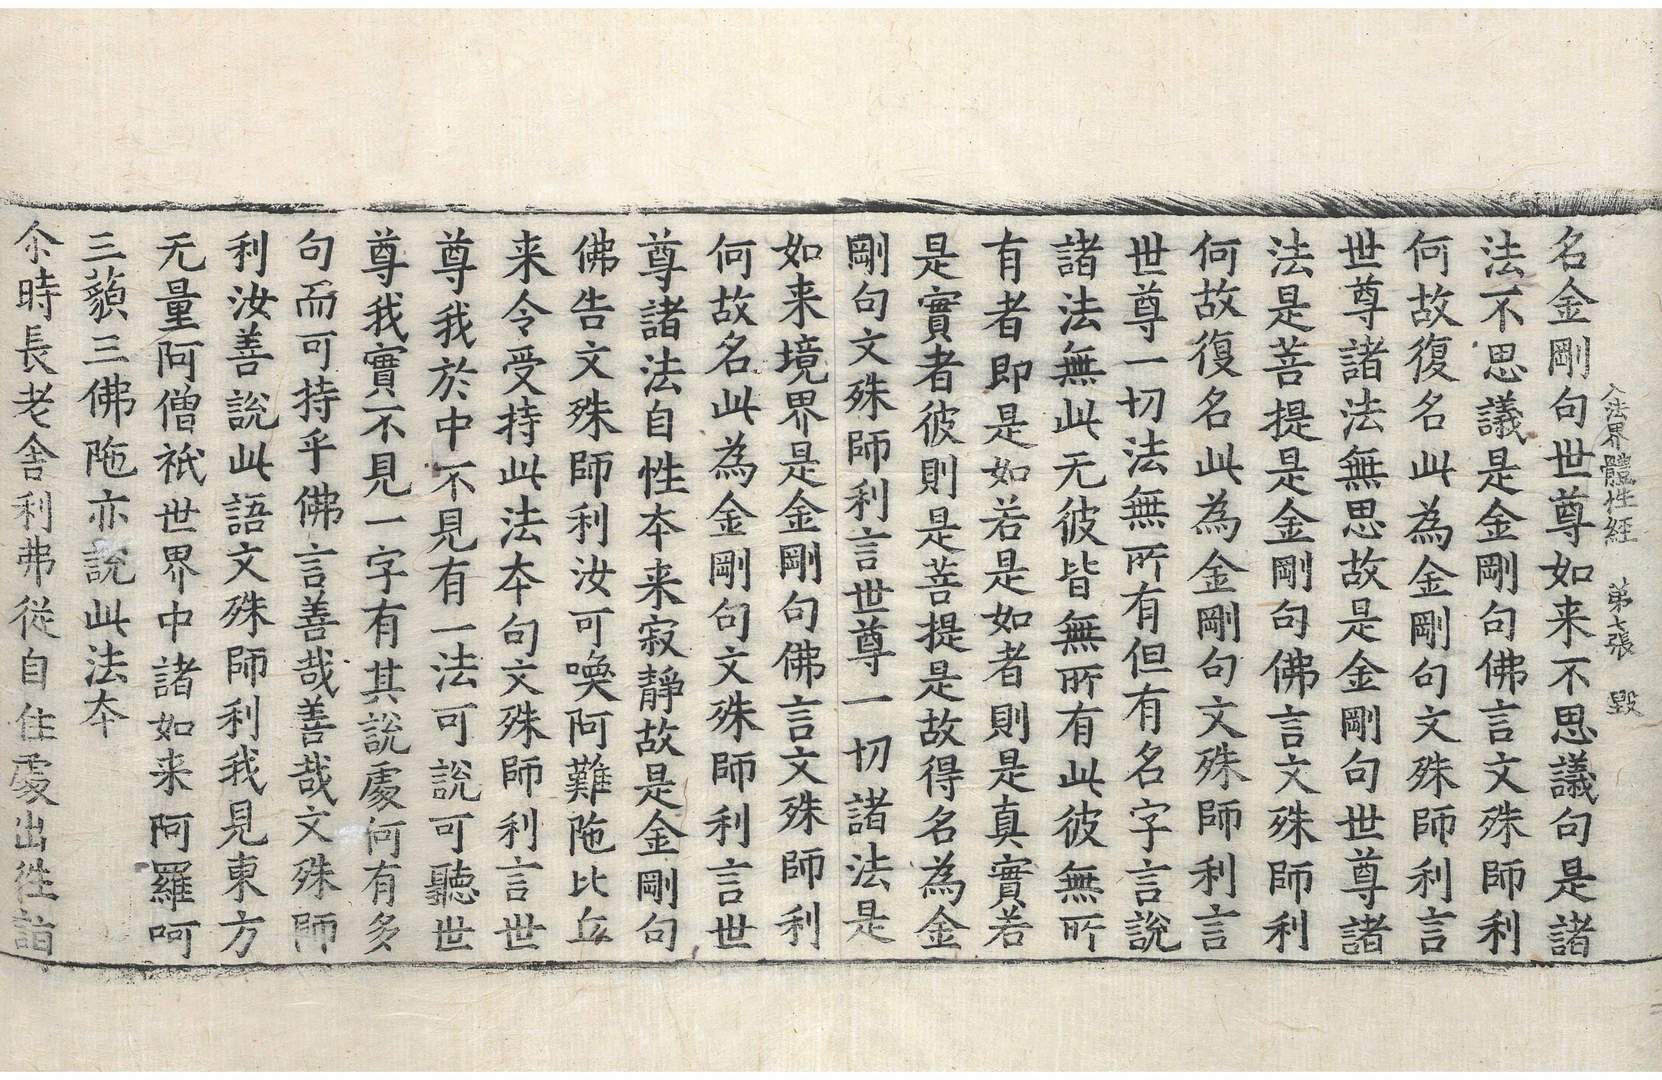 入法界體性經 第七張 毀
名金剛句世尊如来不思議句是諸
法不思議是金剛句佛言文殊師利
何故復名此為金剛句文殊師利言
世尊諸法無思故是金剛句世尊諸
法是菩提是金剛句佛言文殊師利
何故復名此為金剛句文殊師利言
世尊一切法無所有但有名字言說
諸法無此无彼皆無所有此彼無所
有者即是如若是如者則是真實若
是實者彼則是菩提是故得名為金
剛句文殊師利言世尊一切諸法是
如来境界是金剛句佛言文殊師利
何故名此為金剛句文殊師利言世
尊諸法自性本来寂靜故是金剛句
佛告文殊師利汝可喚阿難陁比丘
来令受持此法夲句文殊師利言世
尊我於中不見有一法可說可聽世
尊我實不見一字有其說處何有多
句而可持乎佛言善哉善哉文殊師
利汝善說此語文殊師利我見東方
无量阿僧祇世界中諸如来阿羅呵
三藐三佛陁亦說此法夲
尒時長老舎利弗從自住處出徃詣